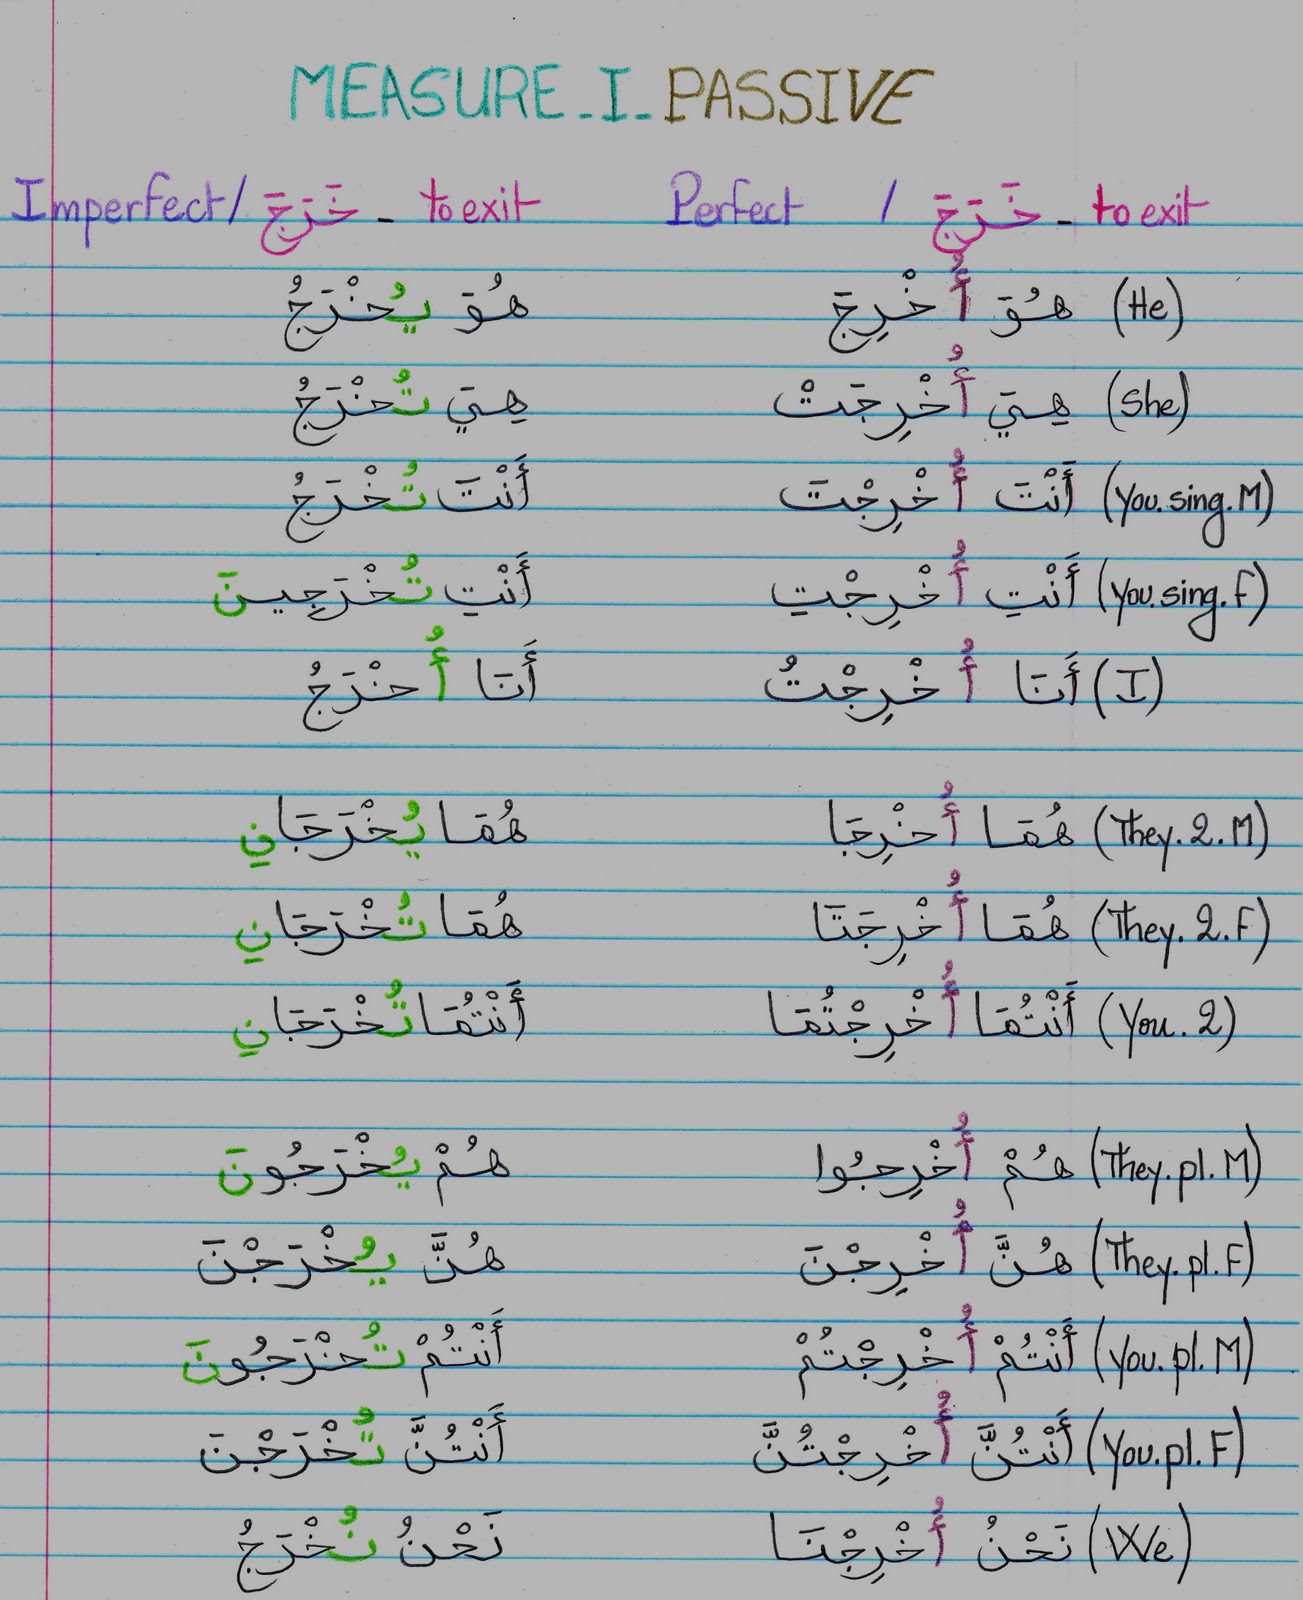 MEASURE_I_PASSIVE
Imperfect / خَرَجَ - to exit Perfect / خَرَجَ - to exit
هُوَ يُخْرَجُ هُوَ أُخْرِجَ (He)
هِيَ تُخْرَجُ هِيَ أُخْرِجَتْ (She)
أَنْتَ تُخْرَجُ أَنْتَ أُخْرِجْتَ (You.sing.M)
أَنْتِ تُخْرَجِينَ أَنْتِ أُخْرِجْتِ (You.sing.F)
أَنَا أُخْرَجُ أَنَا أُخْرِجْتُ (I)
هُمَا يُخْرَجَانِ هُمَا أُخْرِجَا (They.2.M)
هُمَا تُخْرَجَانِ هُمَا أُخْرِجَتَا (They.2.F)
أَنْتُمَا تُخْرَجَانِ أَنْتُمَا أُخْرِجْتُمَا (You.2)
هُمْ يُخْرَجُونَ هُمْ أُخْرِجُوا (They.pl.M)
هُنَّ يُخْرَجْنَ هُنَّ أُخْرِجْنَ (They.pl.F)
أَنْتُمْ تُخْرَجُونَ أَنْتُمْ أُخْرِجْتُمْ (You.pl.M)
أَنْتُنَّ تُخْرَجْنَ أَنْتُنَّ أُخْرِجْتُنَّ (You.pl.F)
نَحْنُ نُخْرَجُ نَحْنُ أُخْرِجْنَا (We)